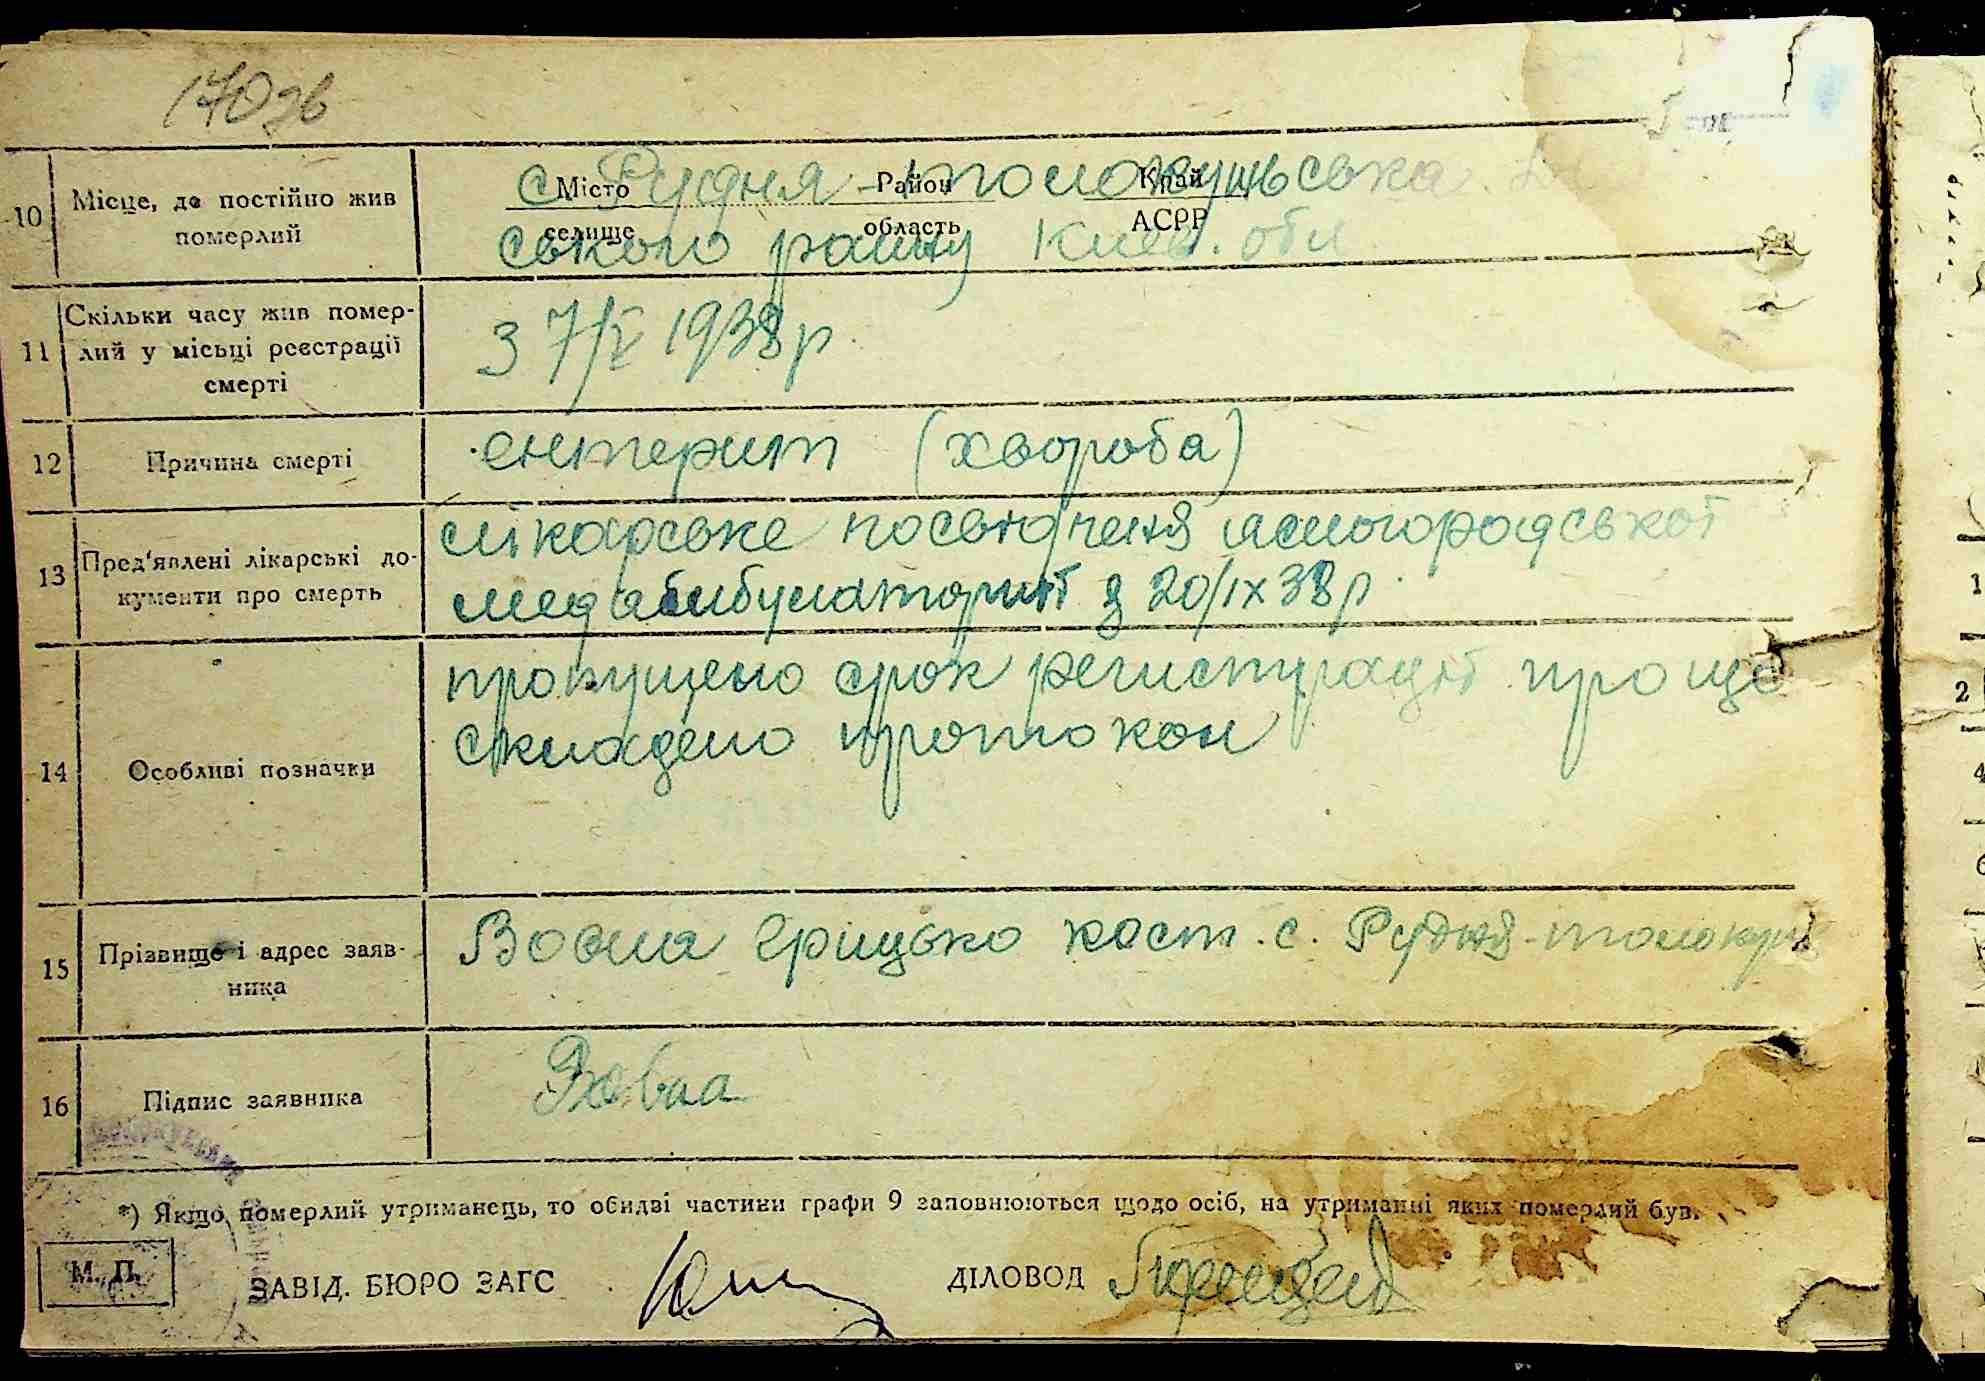 170 зв
10 Місце, де постійно жив померлий
Місто Район Край
селище область АСРР
с Рудня
ського району Киев. обл
11 Скільки часу жив помер-
лий у місьці реєстрації
смерті
з 7/V 1938 р.
12 Причина смерті
ентерит (хвороба)
13 Пред'явлені лікарські до-
кументи про смерть
лікарське посвідченя ясногородської
медамбулаторії з 20/IX 38 р.
14 Особливі позначки
пропущено срок регистрації про що
складено протокол
15 Прізвище і адрес заяв-
ника
Вовна Грицько Кост. с. Рудня-
16 Підпис заявника
Вовна
*) Якщо померлий утриманець, то обидві частини графи 9 заповнюються щодо осіб, на утриманні яких померлий був.
М. П.
ЗАВІД. БЮРО ЗАГС
ДІЛОВОД